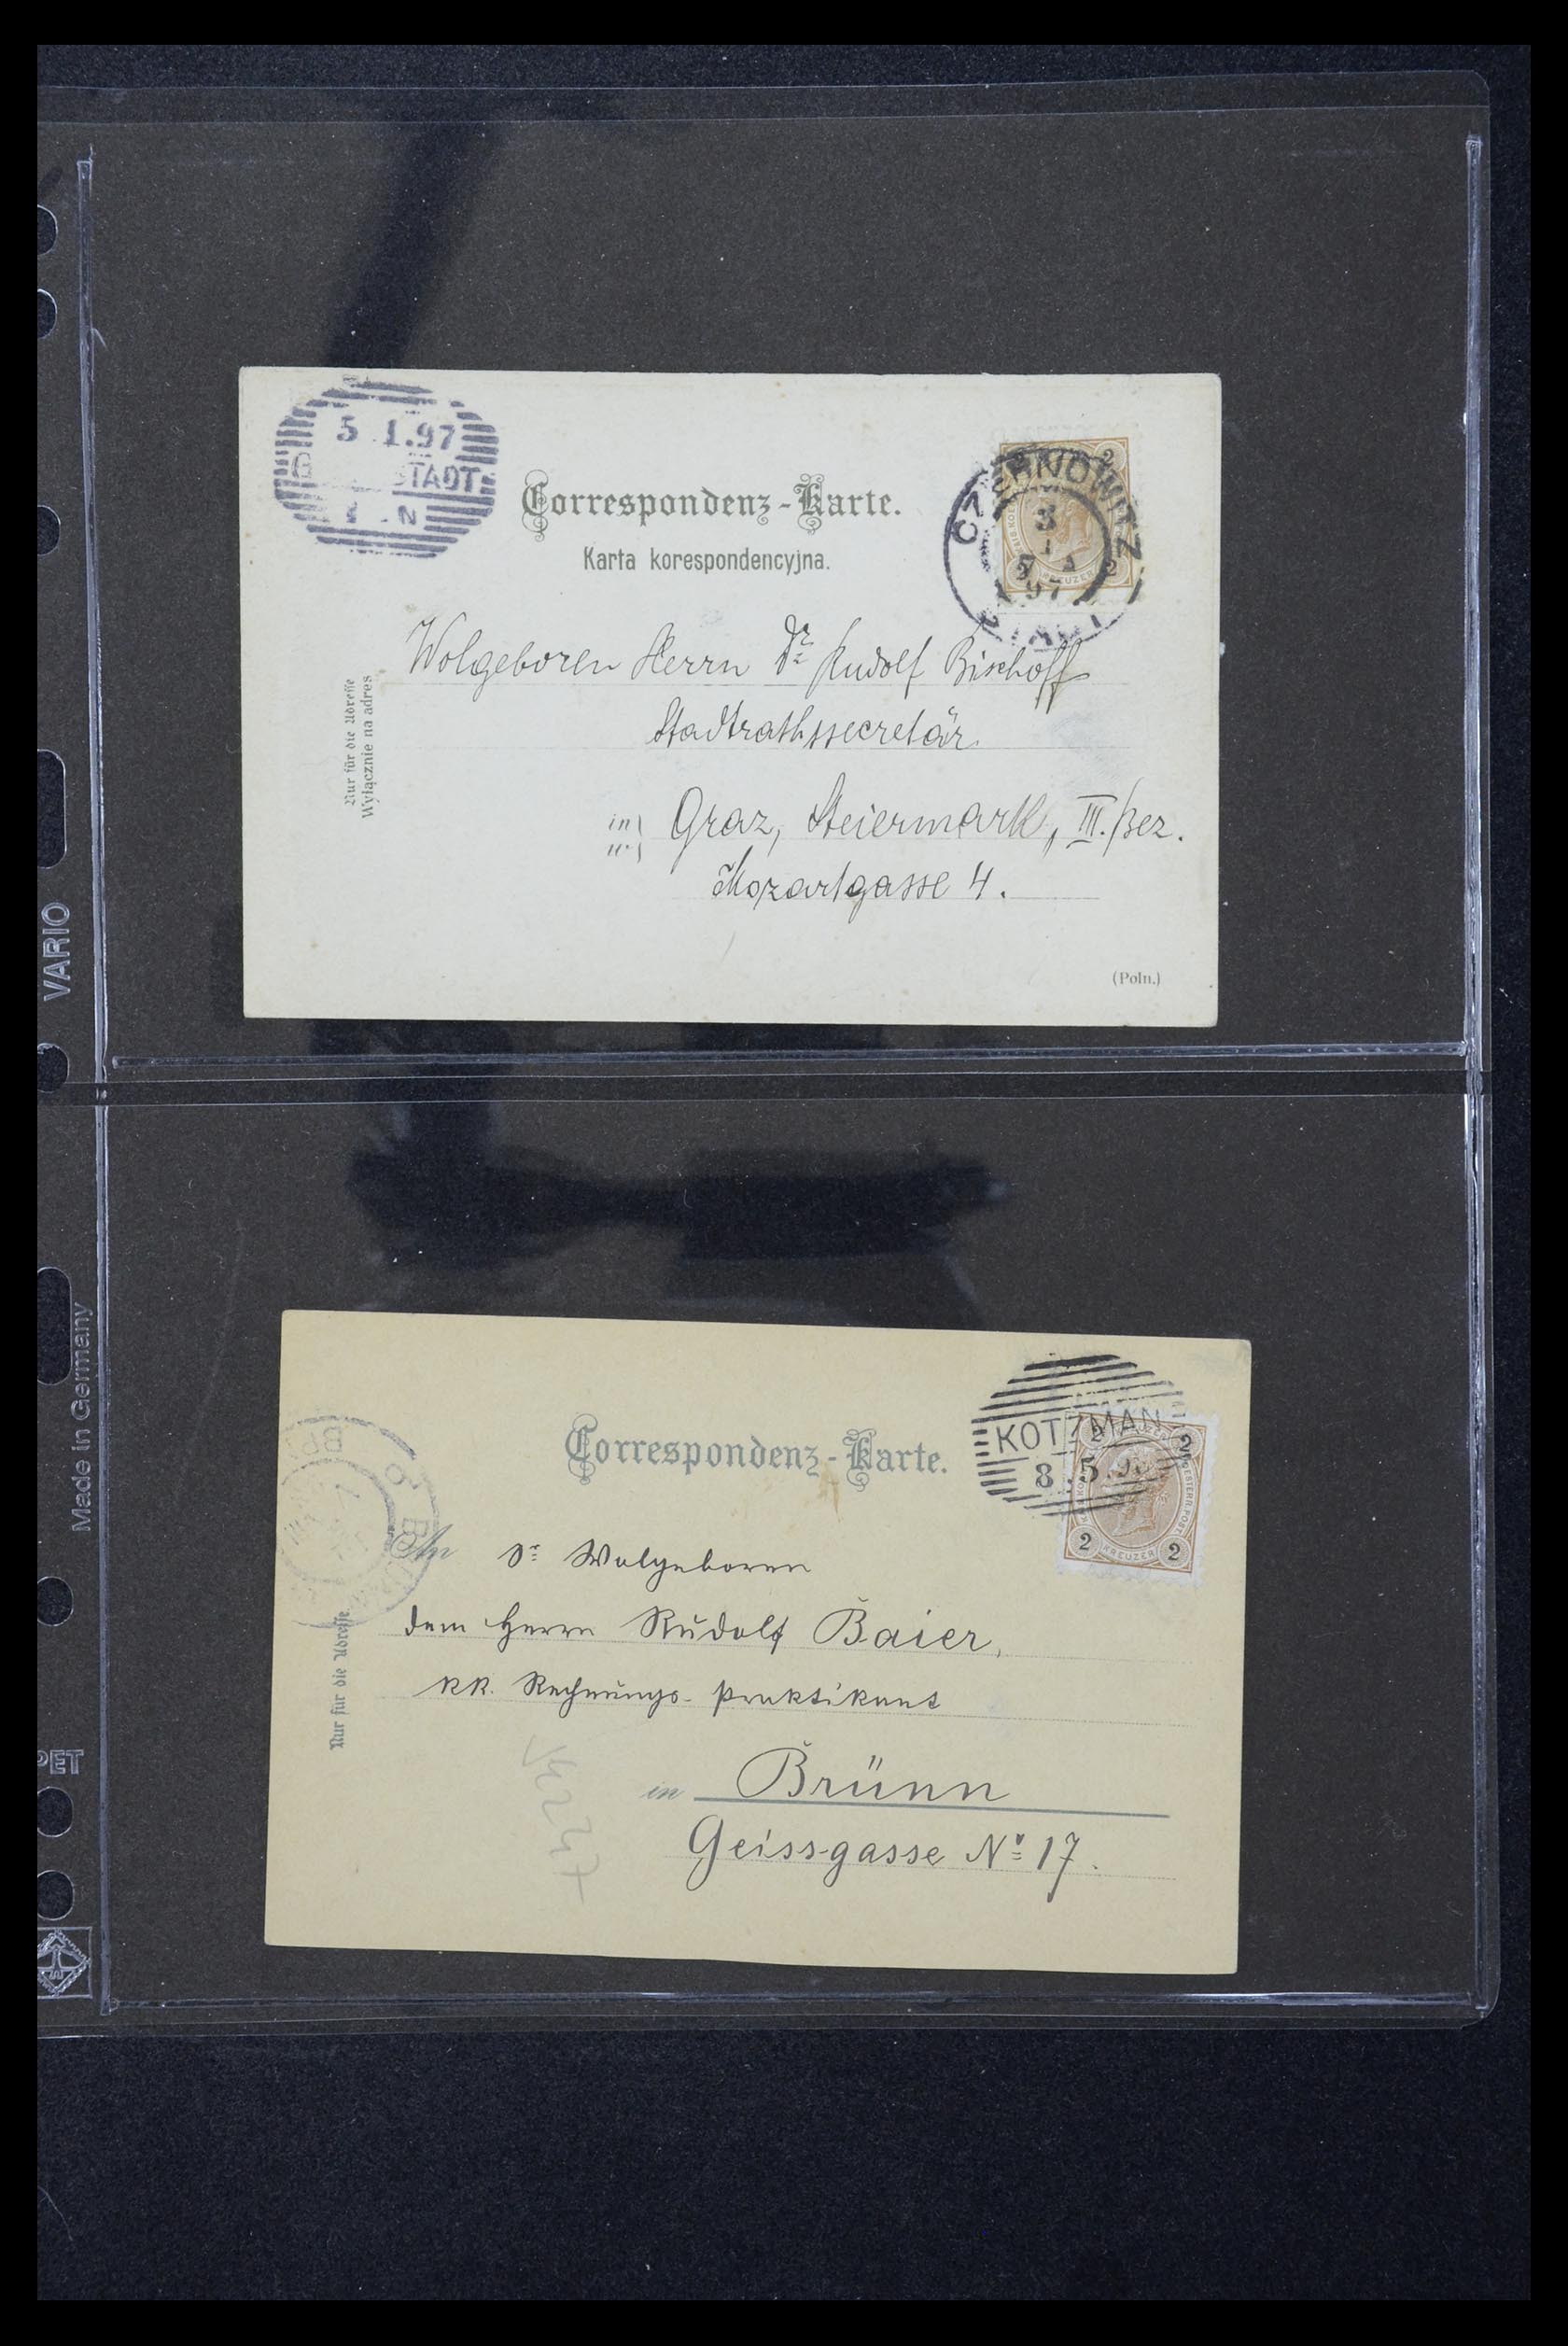 5 .1.97
STADT
Correspondenz-Karte.
Karta korespondencyjna.
2
CZERNOWITZ
3
1
5 A
97
STADT
2
KREUZER
Nur für die Adresse
Wyłącznie na adres
Wolgeboren Herrn Dr Rudolf Bischoff
Stadtrathssecretär
in
w
Graz, Steiermark, III. Bez.
Mozartgasse 4.
(Poln.)
VARIO
Made in Germany
PET
Correspondenz-Karte.
KOTZMAN
8 .5.
2 2
2 KREUZER 2
OESTERR. POST.
BR
An Sr Wolgeboren
dem Herrn Rudolf Baier,
KK. Rechnungs-Praktikant
Nur für die Adresse.
in Brünn
Geissgasse No 17.